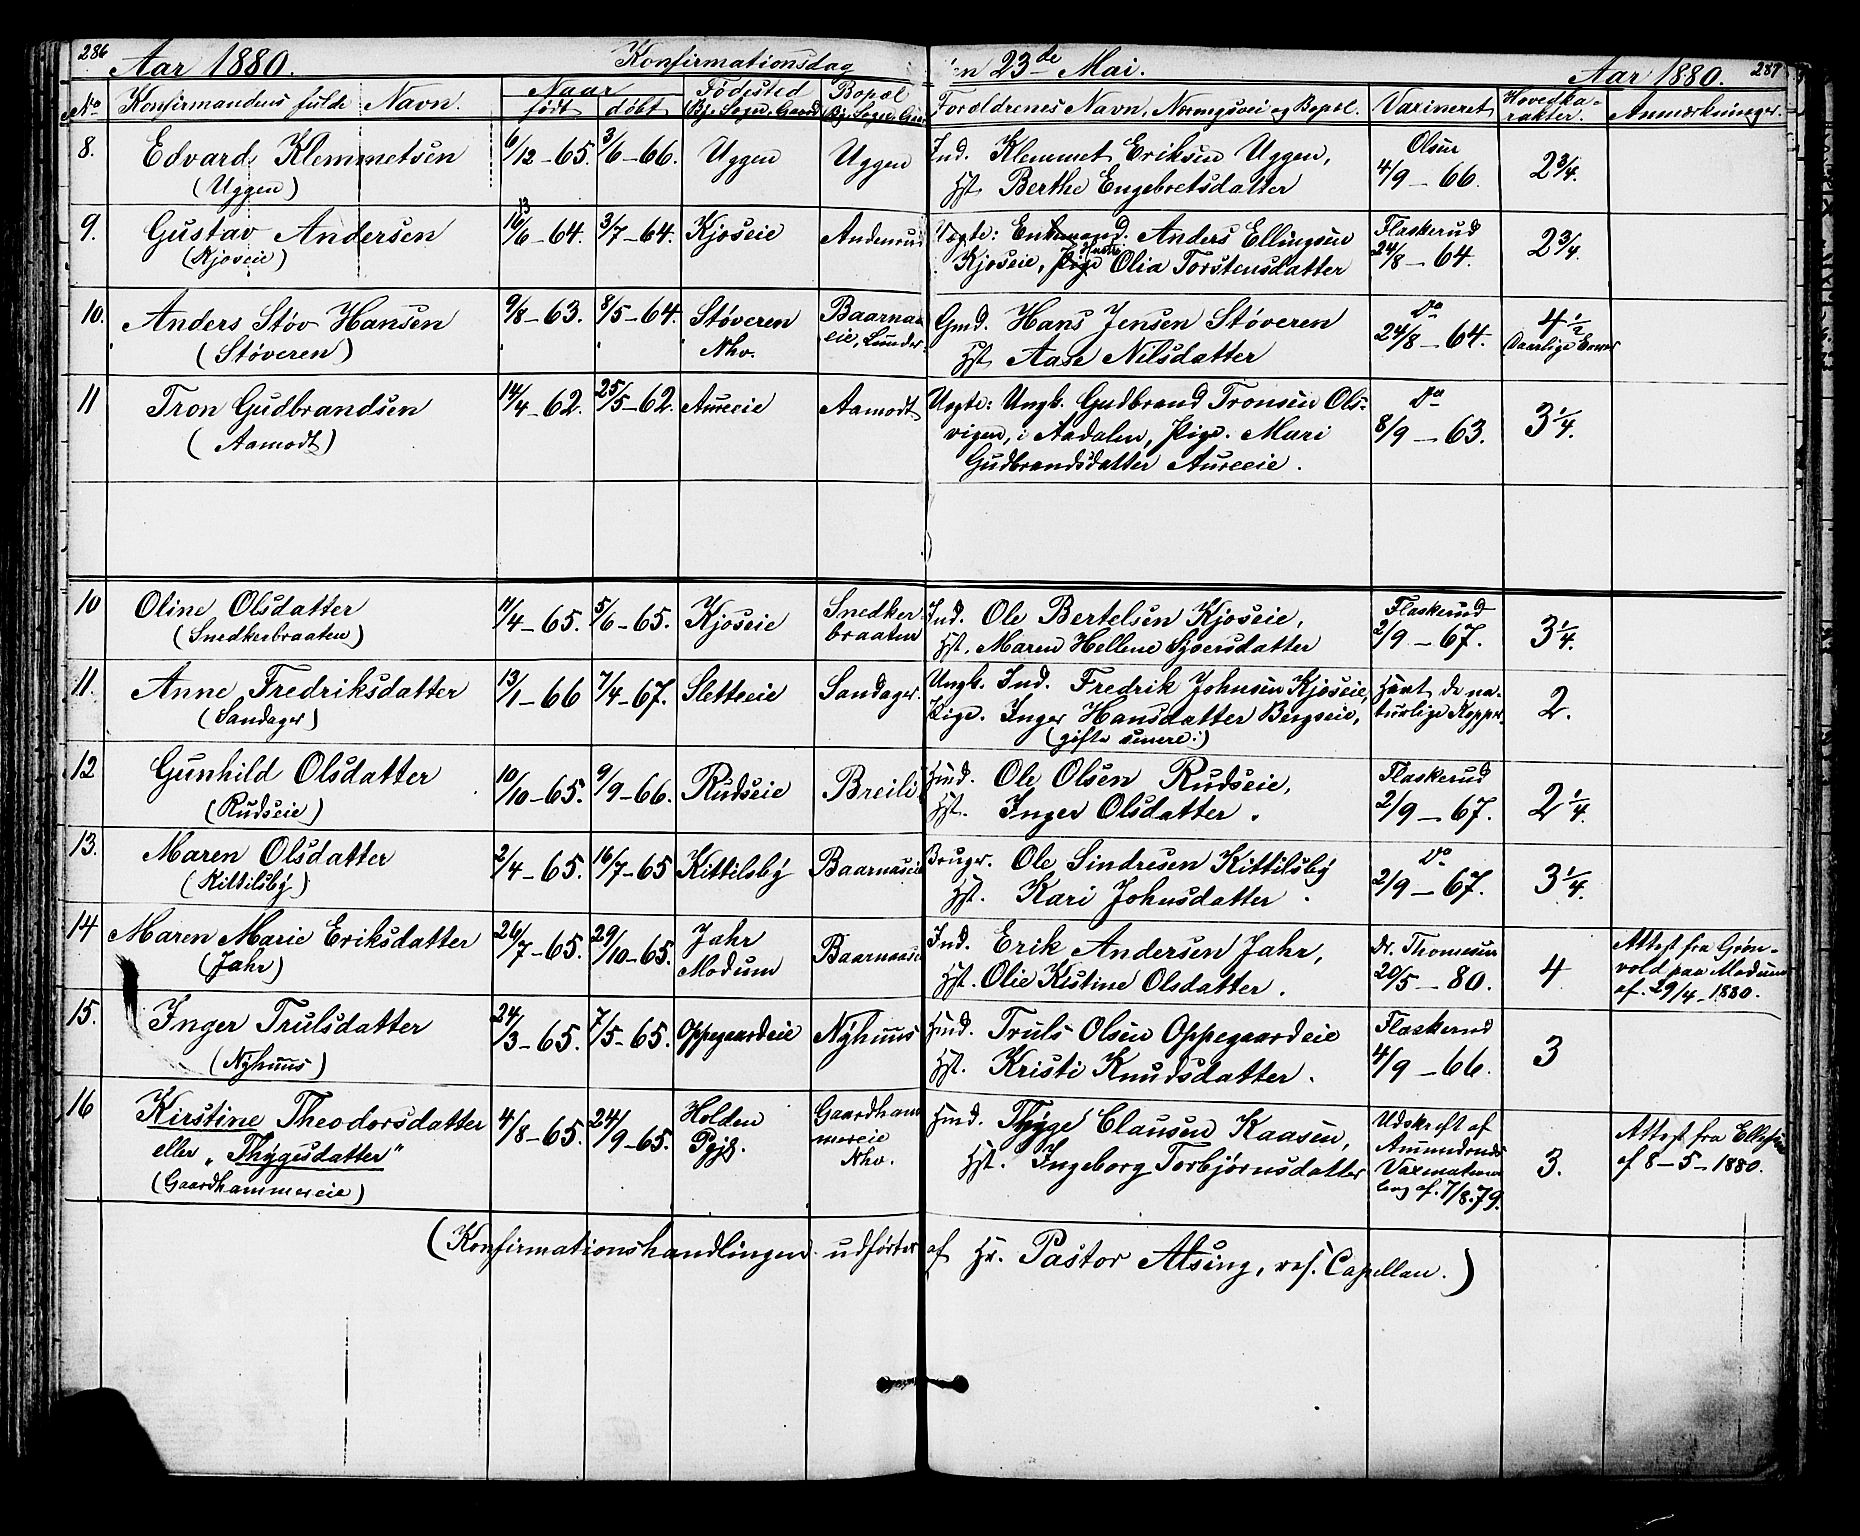 286 Aar 1880. Konfirmationsdag den 23de Mai. Aar 1880. 287
No Konfirmandens fulde Navn. Naar født døbt Fødested By. Sogn. Gaard Bopæl By. Sogn. Gaard Forældrenes Navn, Næringsvei og Bopæl. Vaxineret Hovedka-rakter. Anmærkninger.
8. Edvard Klemmetsen 6/12–65. 3/6–66. Uggen Uggen Ind. Klemmet Eriksen Uggen, Olsen 4/9–66. 2 3/4.
(Uggen) Hst. Berthe Engebretsdatter
9. Gustav Andersen 16/6–64. 13 3/7–64. Kjøseie Andenrud Uægte: Enkemand. Anders Ellingsen Flaskerud 24/8–64. 2 3/4
(Kjøseie) Kjøseie, Pige Hustr. Olia Torstensdatter
10. Anders Støv Hansen 9/8–63. 8/5–64. Støveren Baarnas- Gmd. Hans Jensen Støveren Do 24/8–64. 4 1/2
(Støveren) Nhv. eie, Lunder. Hst. Aase Nilsdatter Daarlige Evner
11 Tron Gudbrandsen 14/4–62. 25/5–62. Aureeie Aamodt Uægte: Ungk. Gudbrand Tronsen Ols- Do 8/9–63. 3 1/4.
(Aamodt) vigen, i Aadalen, Pige. Mari
Gudbrandsdatter Aureeie.
10 Oline Olsdatter 11/4–65. 5/6–65. Kjøseie Snedker- Ind. Ole Bertelsen Kjøseie, Flaskerud 2/9–67. 3 1/4.
(Snedkerbraaten) braaten Hst. Maren Hellene Syversdatter
11. Anne Fredriksdatter 13/1–66 7/4–67. Sletteeie Sandager. Ungk. Ind. Fredrik Johnsen Kjøseie, Havt de na- 2.
(Sandager) Pige. Inger Hansdatter Bergseie, turlige Kopper.
(gifte senere:)
12 Gunhild Olsdatter 10/10–65. 9/9–66. Rudseie Breili Hmd. Ole Olsen Rudseie, Flaskerud 2/9–67. 2 1/4.
(Rudseie) Hst. Inger Olsdatter.
13. Maren Olsdatter 2/4–65. 16/7–65 Kittilsby Baarnaseie Bruger. Ole Sindresen Kittilsby Do 2/9–67. 3 1/4.
(Kittilsby) Hst. Kari Johnsdatter.
14 Maren Marie Eriksdatter 26/7–65. 29/10–65. Jahr Baarnaseie Ind. Erik Andersen Jahr, Dr. Thomesen 20/5–80. 4 Attest fra Grøn-
(Jahr) Modum Hst. Olie Kistine Olsdatter. vold paa Modum
af. 29/4–1880.
15. Inger Trulsdatter 24/3–65. 7/5–65. Oppegaardeie Nyhuus Hmd. Truls Olsen Oppegaardeie Flaskerud 4/9–66. 3
(Nyhuus) Hst. Kristi Knudsdatter.
16 Kirstine Theodorsdatter 4/8–65. 24/9–65. Holden Gaardham- Hmd. Thyge Clausen Kaasen, Udskrift af 3. Attest fra
eller „Thygesdatter“ Pgj. mereie Hst. Ingeborg Torbjørnsdatter af 8–5–1880.
(Gaardhammereie) Nhv. af. 7/8.79.
(Konfirmationshandlingen udførtes af Hr. Pastor Alsing, res. Capellan.)